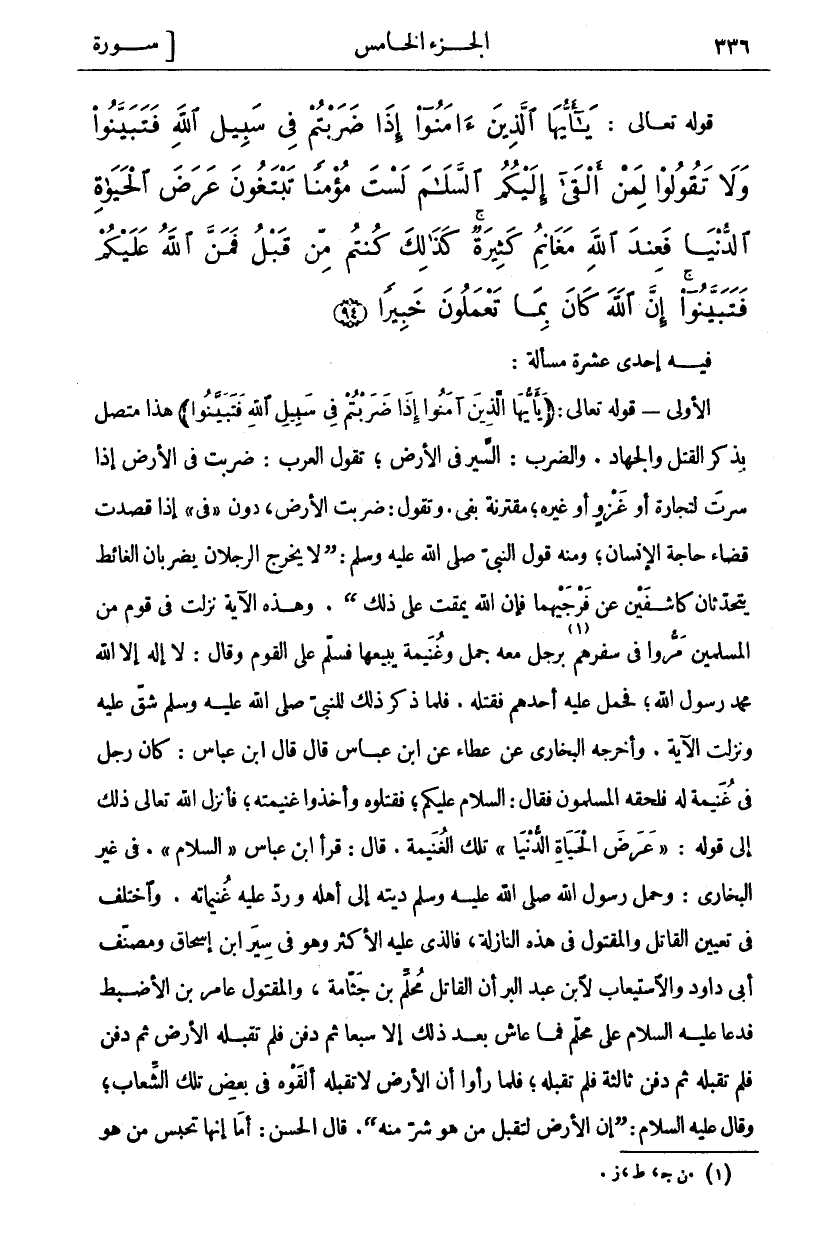 ٣٣٦ الجـزء الخامس [ سـورة
قوله تعـالى : يَـٰٓأَيُّهَا ٱلَّذِينَ ءَامَنُوٓا۟ إِذَا ضَرَبْتُمْ فِى سَبِيلِ ٱللَّهِ فَتَبَيَّنُوا۟
وَلَا تَقُولُوا۟ لِمَنْ أَلْقَىٰٓ إِلَيْكُمُ ٱلسَّلَـٰمَ لَسْتَ مُؤْمِنًا تَبْتَغُونَ عَرَضَ ٱلْحَيَوٰةِ
ٱلدُّنْيَـا فَعِندَ ٱللَّهِ مَغَانِمُ كَثِيرَةٌ ۚ كَذَٰلِكَ كُنتُم مِّن قَبْلُ فَمَنَّ ٱللَّهُ عَلَيْكُمْ
فَتَبَيَّنُوٓا۟ ۚ إِنَّ ٱللَّهَ كَانَ بِمَـا تَعْمَلُونَ خَبِيرًا ﴿٩٤﴾
فيـه إحدى عشرة مسألة :
الأولى — قوله تعالى: ﴿يَأَيُّهَا الَّذِينَ آمَنُوا إِذَا ضَرَبْتُمْ فِى سَبِيلِ اللهِ فَتَبَيَّنُوا﴾ هذا متصل
بذكر القتل والجهاد . والضرب : السَّير فى الأرض ؛ تقول العرب : ضربت فى الأرض إذا
سرتَ لتجارة أو غَزْوٍ أو غيره؛ مقترنة بفى . وتقول: ضربت الأرض، دون «فى» إذا قصدت
قضاء حاجة الإنسان؛ ومنه قول النبىّ صلى الله عليه وسلم : ”لا يخرج الرجلان يضربان الغائط
يتحدّثان كاشـفَيْن عن فَرْجَيْهما فإن الله يمقت على ذلك“ . وهـذه الآية نزلت فى قوم من
المسلمين مَرُّوا فى سفرهم (١) برجل معه جمل وغُنَيمة يبيعها فسلّم على القوم وقال : لا إله إلا الله
محمد رسول الله؛ فحمل عليه أحدهم فقتله . فلما ذكر ذلك للنبىّ صلى الله عليـه وسلم شقّ عليه
ونزلت الآية . وأخرجه البخارى عن عطاء عن ابن عبـاس قال قال ابن عباس : كان رجل
فى غُنَيمة له فلحقه المسلمون فقال: السلام عليكم؛ فقتلوه وأخذوا غنيمته؛ فأنزل الله تعالى ذلك
إلى قوله : «عَرَضَ الْحَيَاةِ الدُّنْيَا» تلك الغُنَيمة . قال : قرأ ابن عباس «السلام» . فى غير
البخارى : وحمل رسول الله صلى الله عليـه وسلم ديته إلى أهله وردّ عليه غُنيماته . وٱختلف
فى تعيين القاتل والمقتول فى هذه النازلة، فالذى عليه الأكثر وهو فى سِيَر ابن إسحاق ومصنّف
أبى داود والٱستيعاب لٱبن عبد البر أن القاتل مُحلِّم بن جَثّامة ، والمقتول عامر بن الأضـبط
فدعا عليـه السلام على محلّم فمـا عاش بعـد ذلك إلا سبعا ثم دفن فلم تقبـله الأرض ثم دفن
فلم تقبله ثم دفن ثالثة فلم تقبله؛ فلما رأوا أن الأرض لا تقبله ألقَوْه فى بعض تلك الشِّعاب؛
وقال عليه السلام: ”إن الأرض لتقبل من هو شرّ منه“. قال الحسن : أمَا إنها تحبس من هو
(١) من ج، ط، ز .